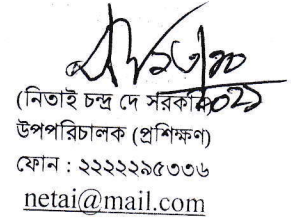 (নিতাই চন্দ্র দে সরকার)
উপপরিচালক (প্রশিক্ষণ)
ফোন : ২২২২২৯৫৩৩৬
netai@mail.com